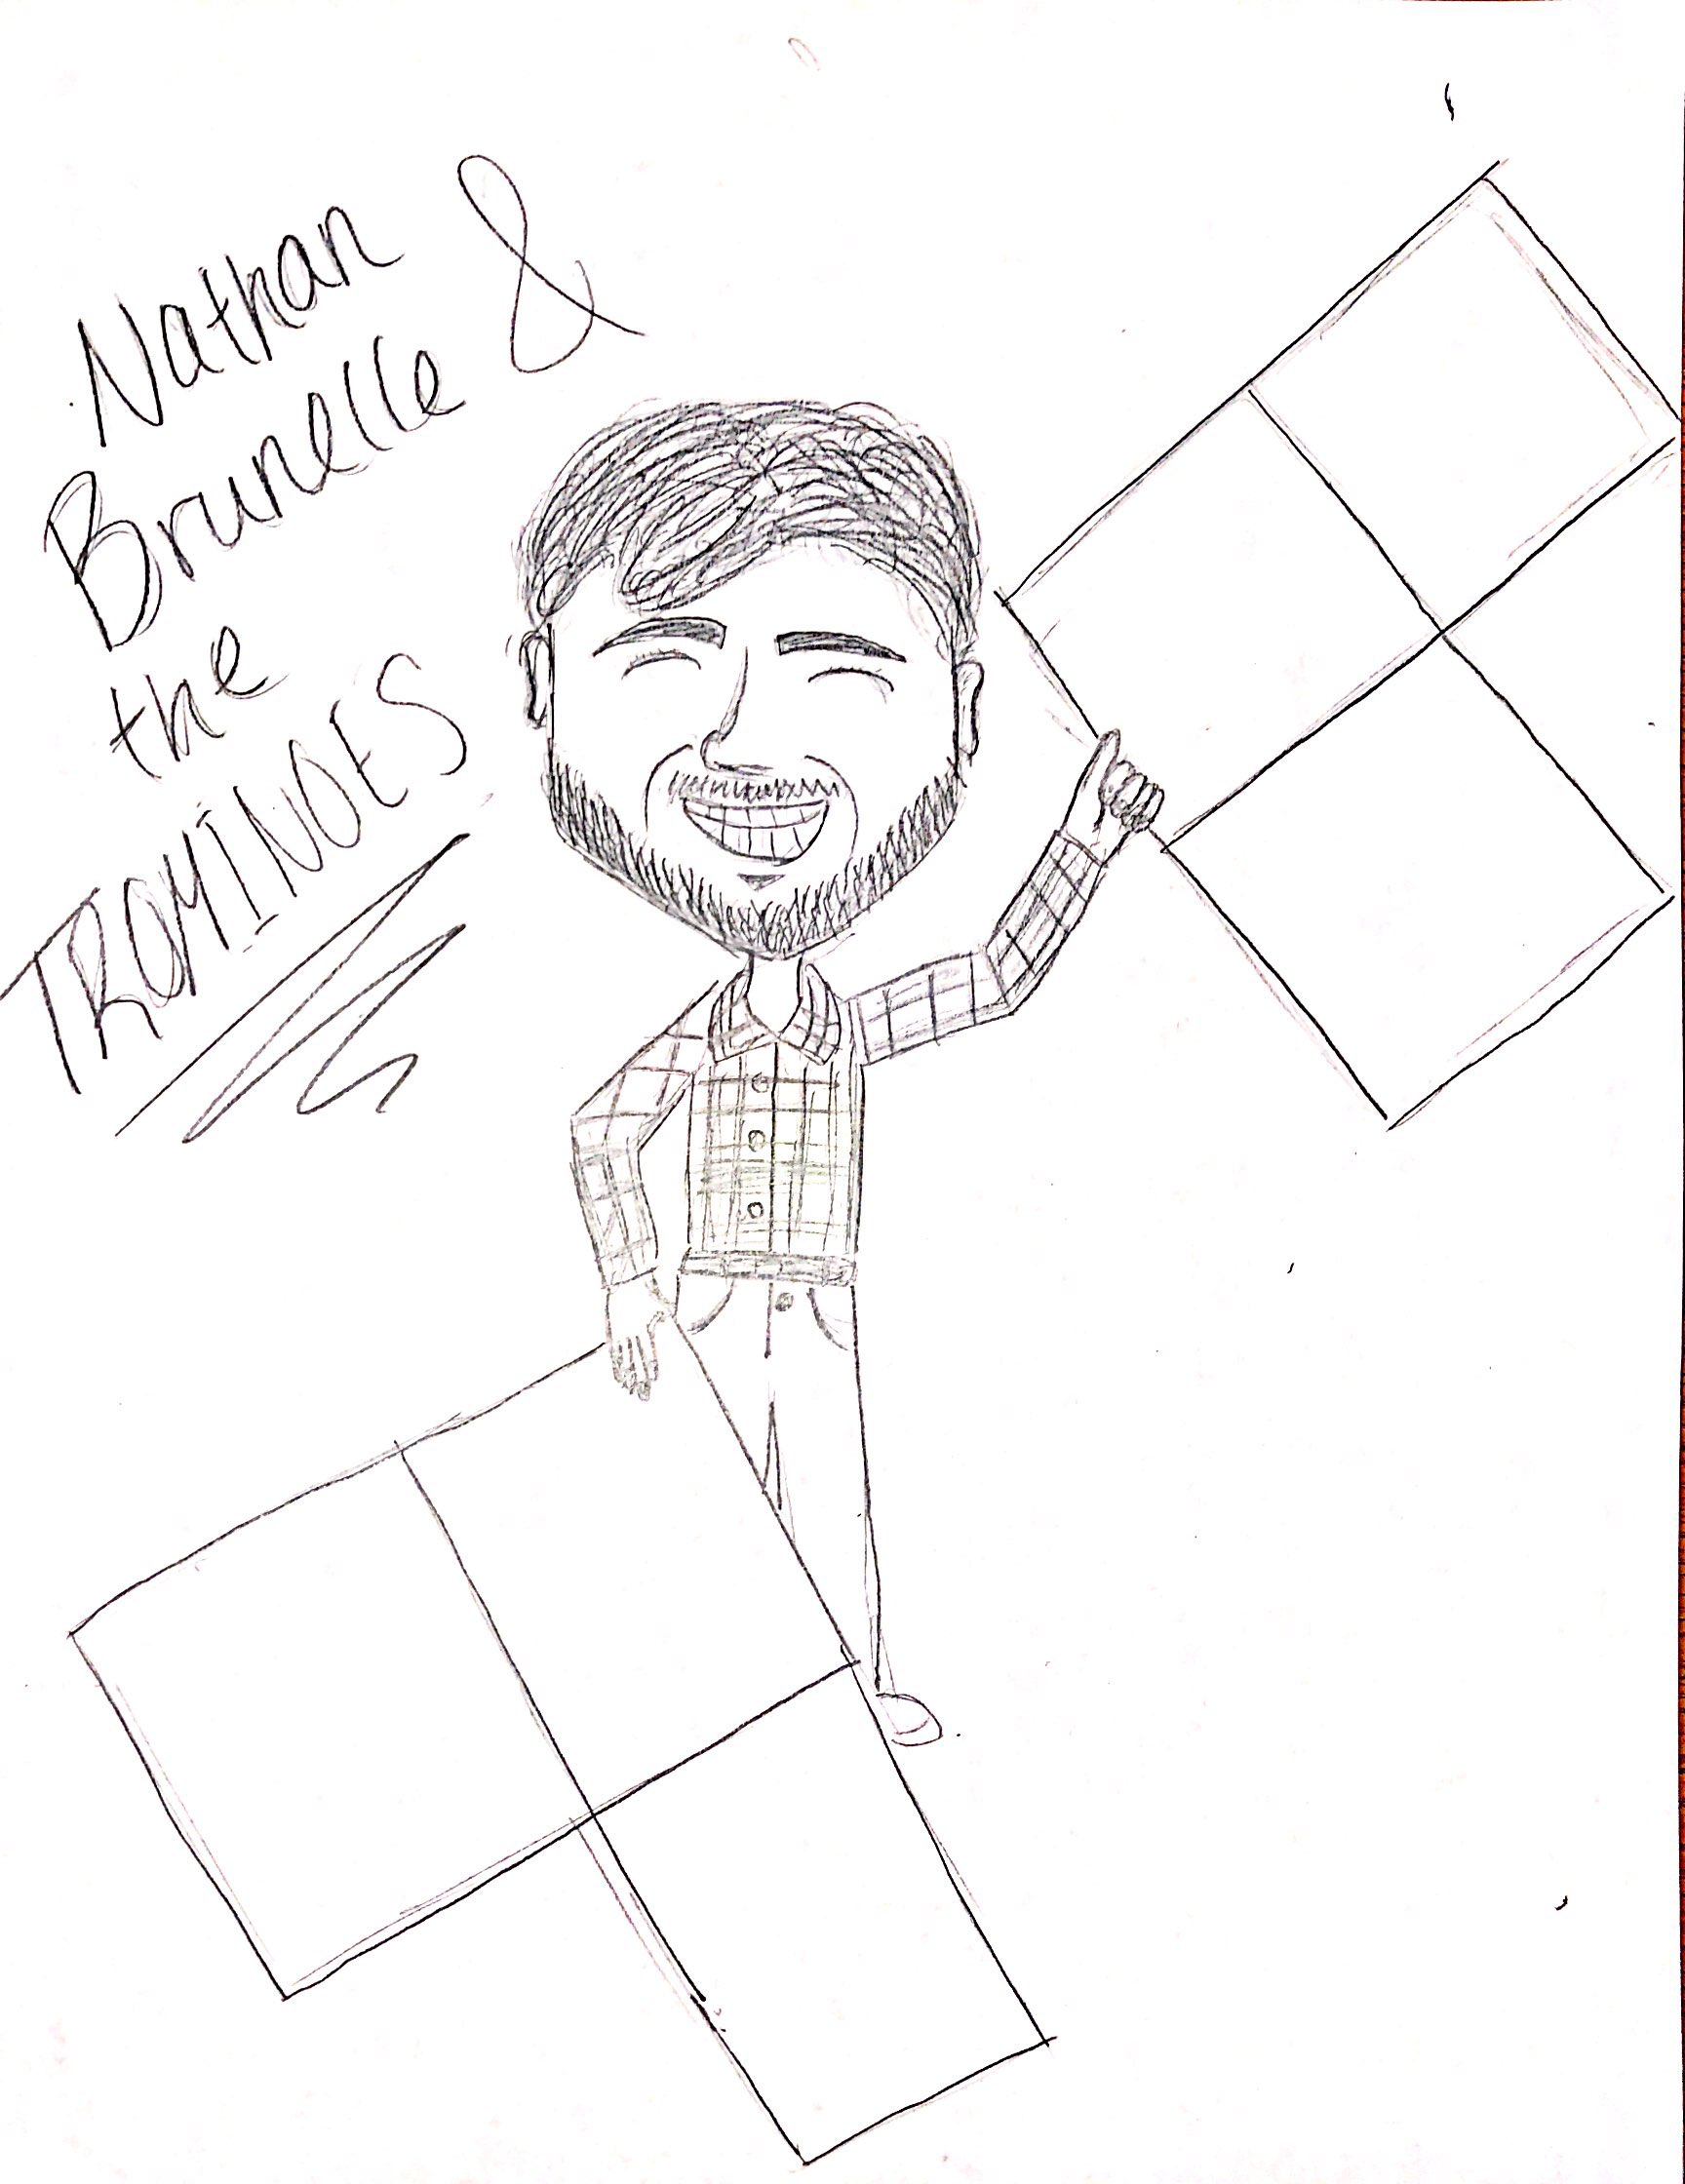 Nathan
Brunelle &
the
TROMINOES